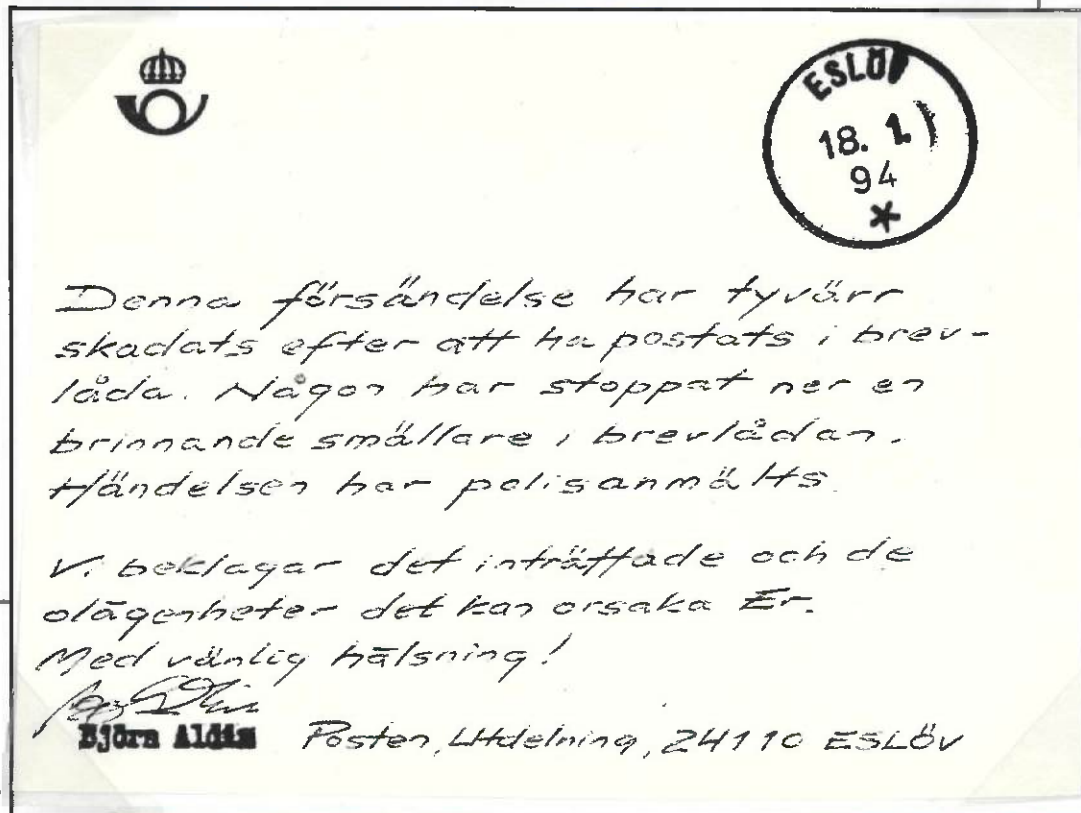 ESLÖV
18. 1.
94
Denna försändelse har tyvärr
skadats efter att ha postats i brev-
låda. Någon har stoppat ner en
brinnande smällare i brevlådan.
Händelsen har polisanmälts.
Vi beklagar det inträffade och de
olägenheter det kan orsaka Er.
Med vänlig hälsning!
Björn
Posten, Utdelning, 24110 ESLÖV